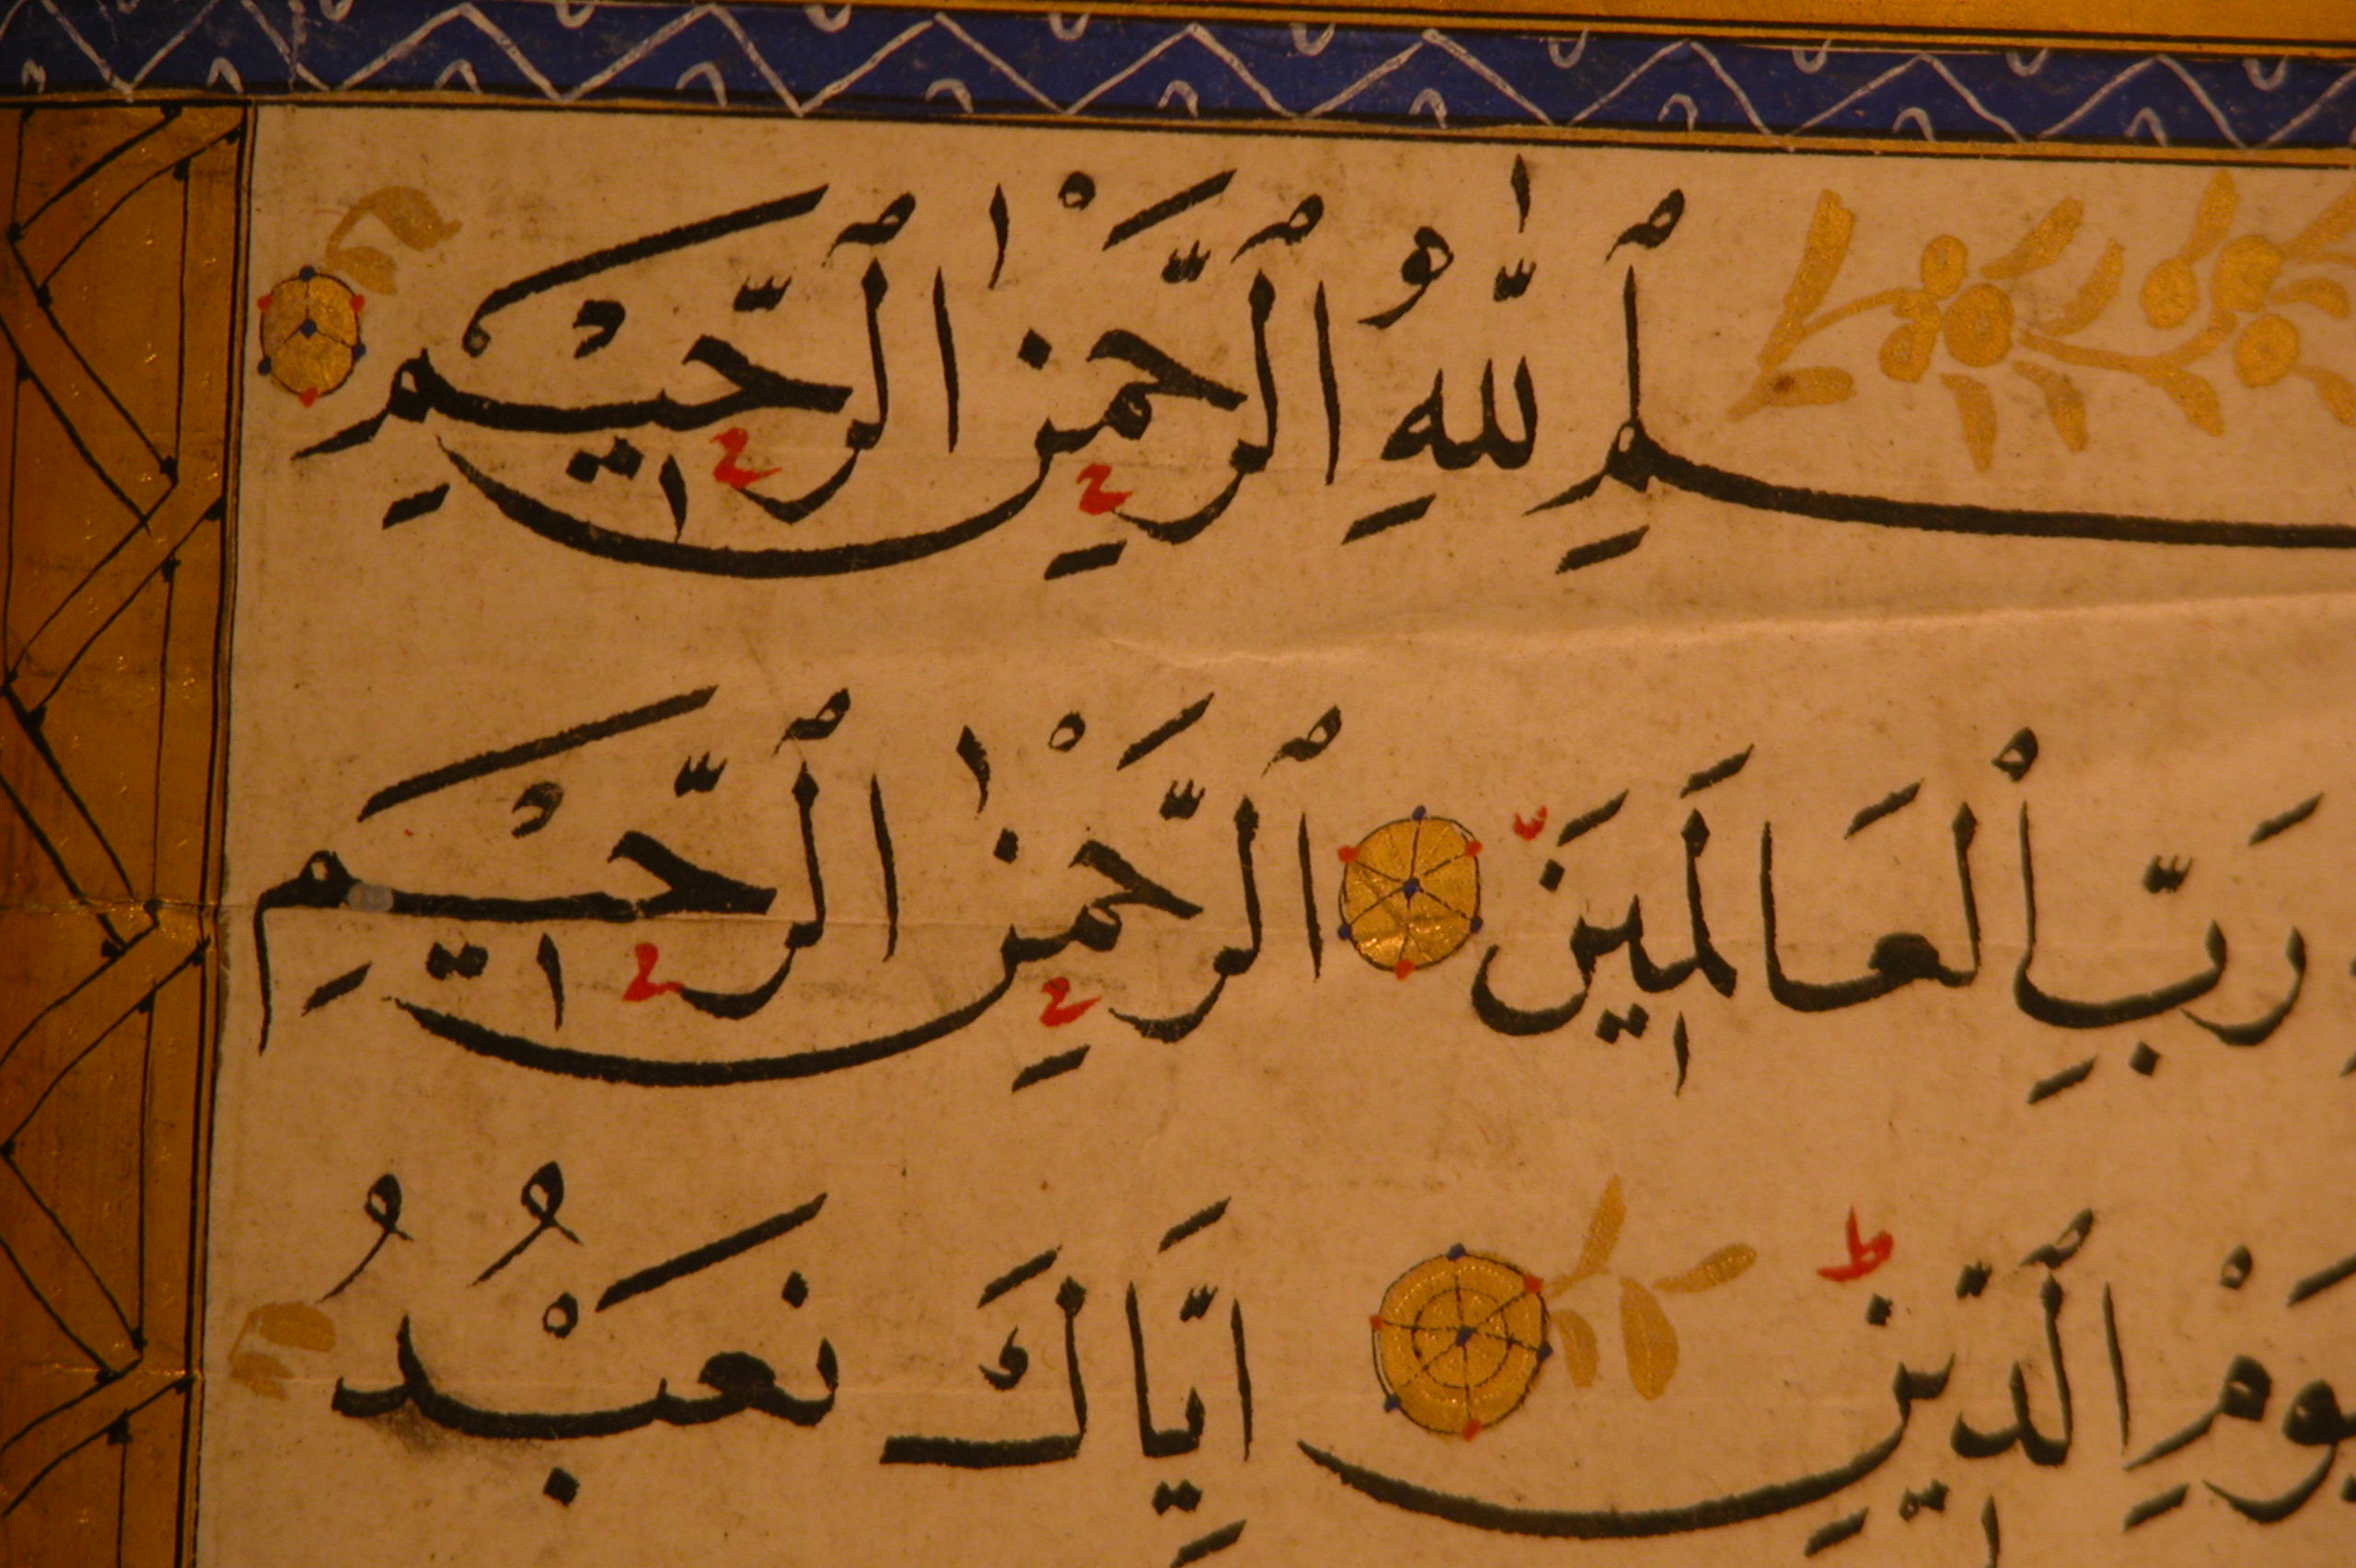 ـسمِ ٱللهِ ٱلرَّحْمٰنِ ٱلرَّحِيمِ
رَبِّ ٱلْعَالَمِينَ ٱلرَّحْمٰنِ ٱلرَّحِيمِ
يَوْمِ ٱلدِّينِ إِيَّاكَ نَعْبُدُ